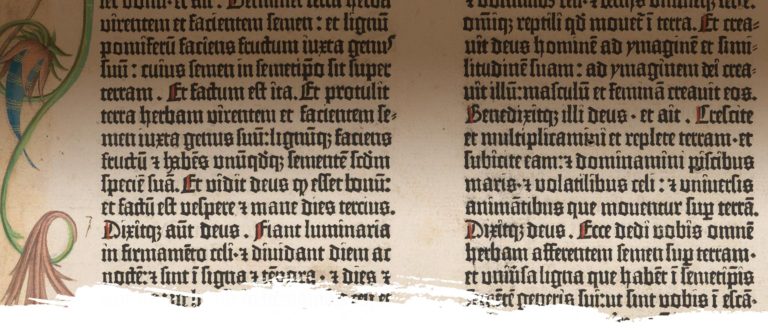 et ait . Germinet terra herbā
virentem et facientem semen : et lignū
pomiferū faciens fructum iuxta genus
suū : cuius semen in semetipso sit super
terram . Et factum est ita . Et protulit
terra herbam virentem et facientem se-
men iuxta genus suū : lignūqꝫ faciens
fructū ⁊ habēs unūqdqꝫ sementē scdm
speciē suā . Et vidit deus ꝙ esset bonū :
et factū est vespere ⁊ mane dies tercius.
Dixitqꝫ aūt deus . Fiant luminaria
in firmamēto celi · ⁊ dividant diem ac
noctē : ⁊ sint ī signa ⁊ tēpora · ⁊ dies ⁊
omīqꝫ reptili qd mouet ī terra . Et crea-
uit deus hominē ad ymaginē et simi-
litudinē suam : ad ymaginem dei crea-
uit illū : masculū et feminā creauit eos.
Benedixitqꝫ illi deus · et ait . Crescite
et multiplicamini et replete terram · et
subicite eam : ⁊ dominamini piscibus
maris · ⁊ volatilibus celi : ⁊ uniuersis
animātibus que mouentur sup terrā.
Dixitqꝫ deus . Ecce dedi vobis omnē
herbam afferentem semen sup terram ·
et uniūsa ligna que habēt ī semetipīs
sementē generis sui : ut sint vobis ī escā ·